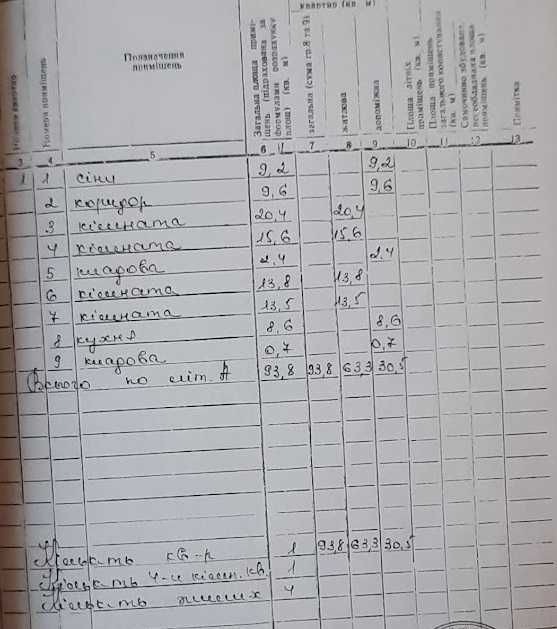 квартир (кв. м)
Номери квартир
Номери приміщень
Позначення приміщень
Загальна площа приміщень (підрахована за формулами розрахунку площ) (кв. м)
загальна (сума гр.8 та 9)
житлова
допоміжна
Площа літніх приміщень (кв. м)
Площа приміщень загального користування (кв. м)
Самочинно збудована, переобладнана площа приміщень (кв. м)
Примітка
3 4 5 6 7 8 9 10 11 12 13
1 1 сіни 9,2 9,2
2 коридор 9,6 9,6
3 кімната 20,4 20,4
4 кімната 15,6 15,6
5 кладова 2,4 2,4
6 кімната 13,8 13,8
7 кімната 13,5 13,5
8 кухня 8,6 8,6
9 кладова 0,7 0,7
Всього по літ. А 93,8 93,8 63,3 30,5
Кількість кв-р 1 93,8 63,3 30,5
Кількість 4-и кімн. кв. 1
Кількість жилих 4